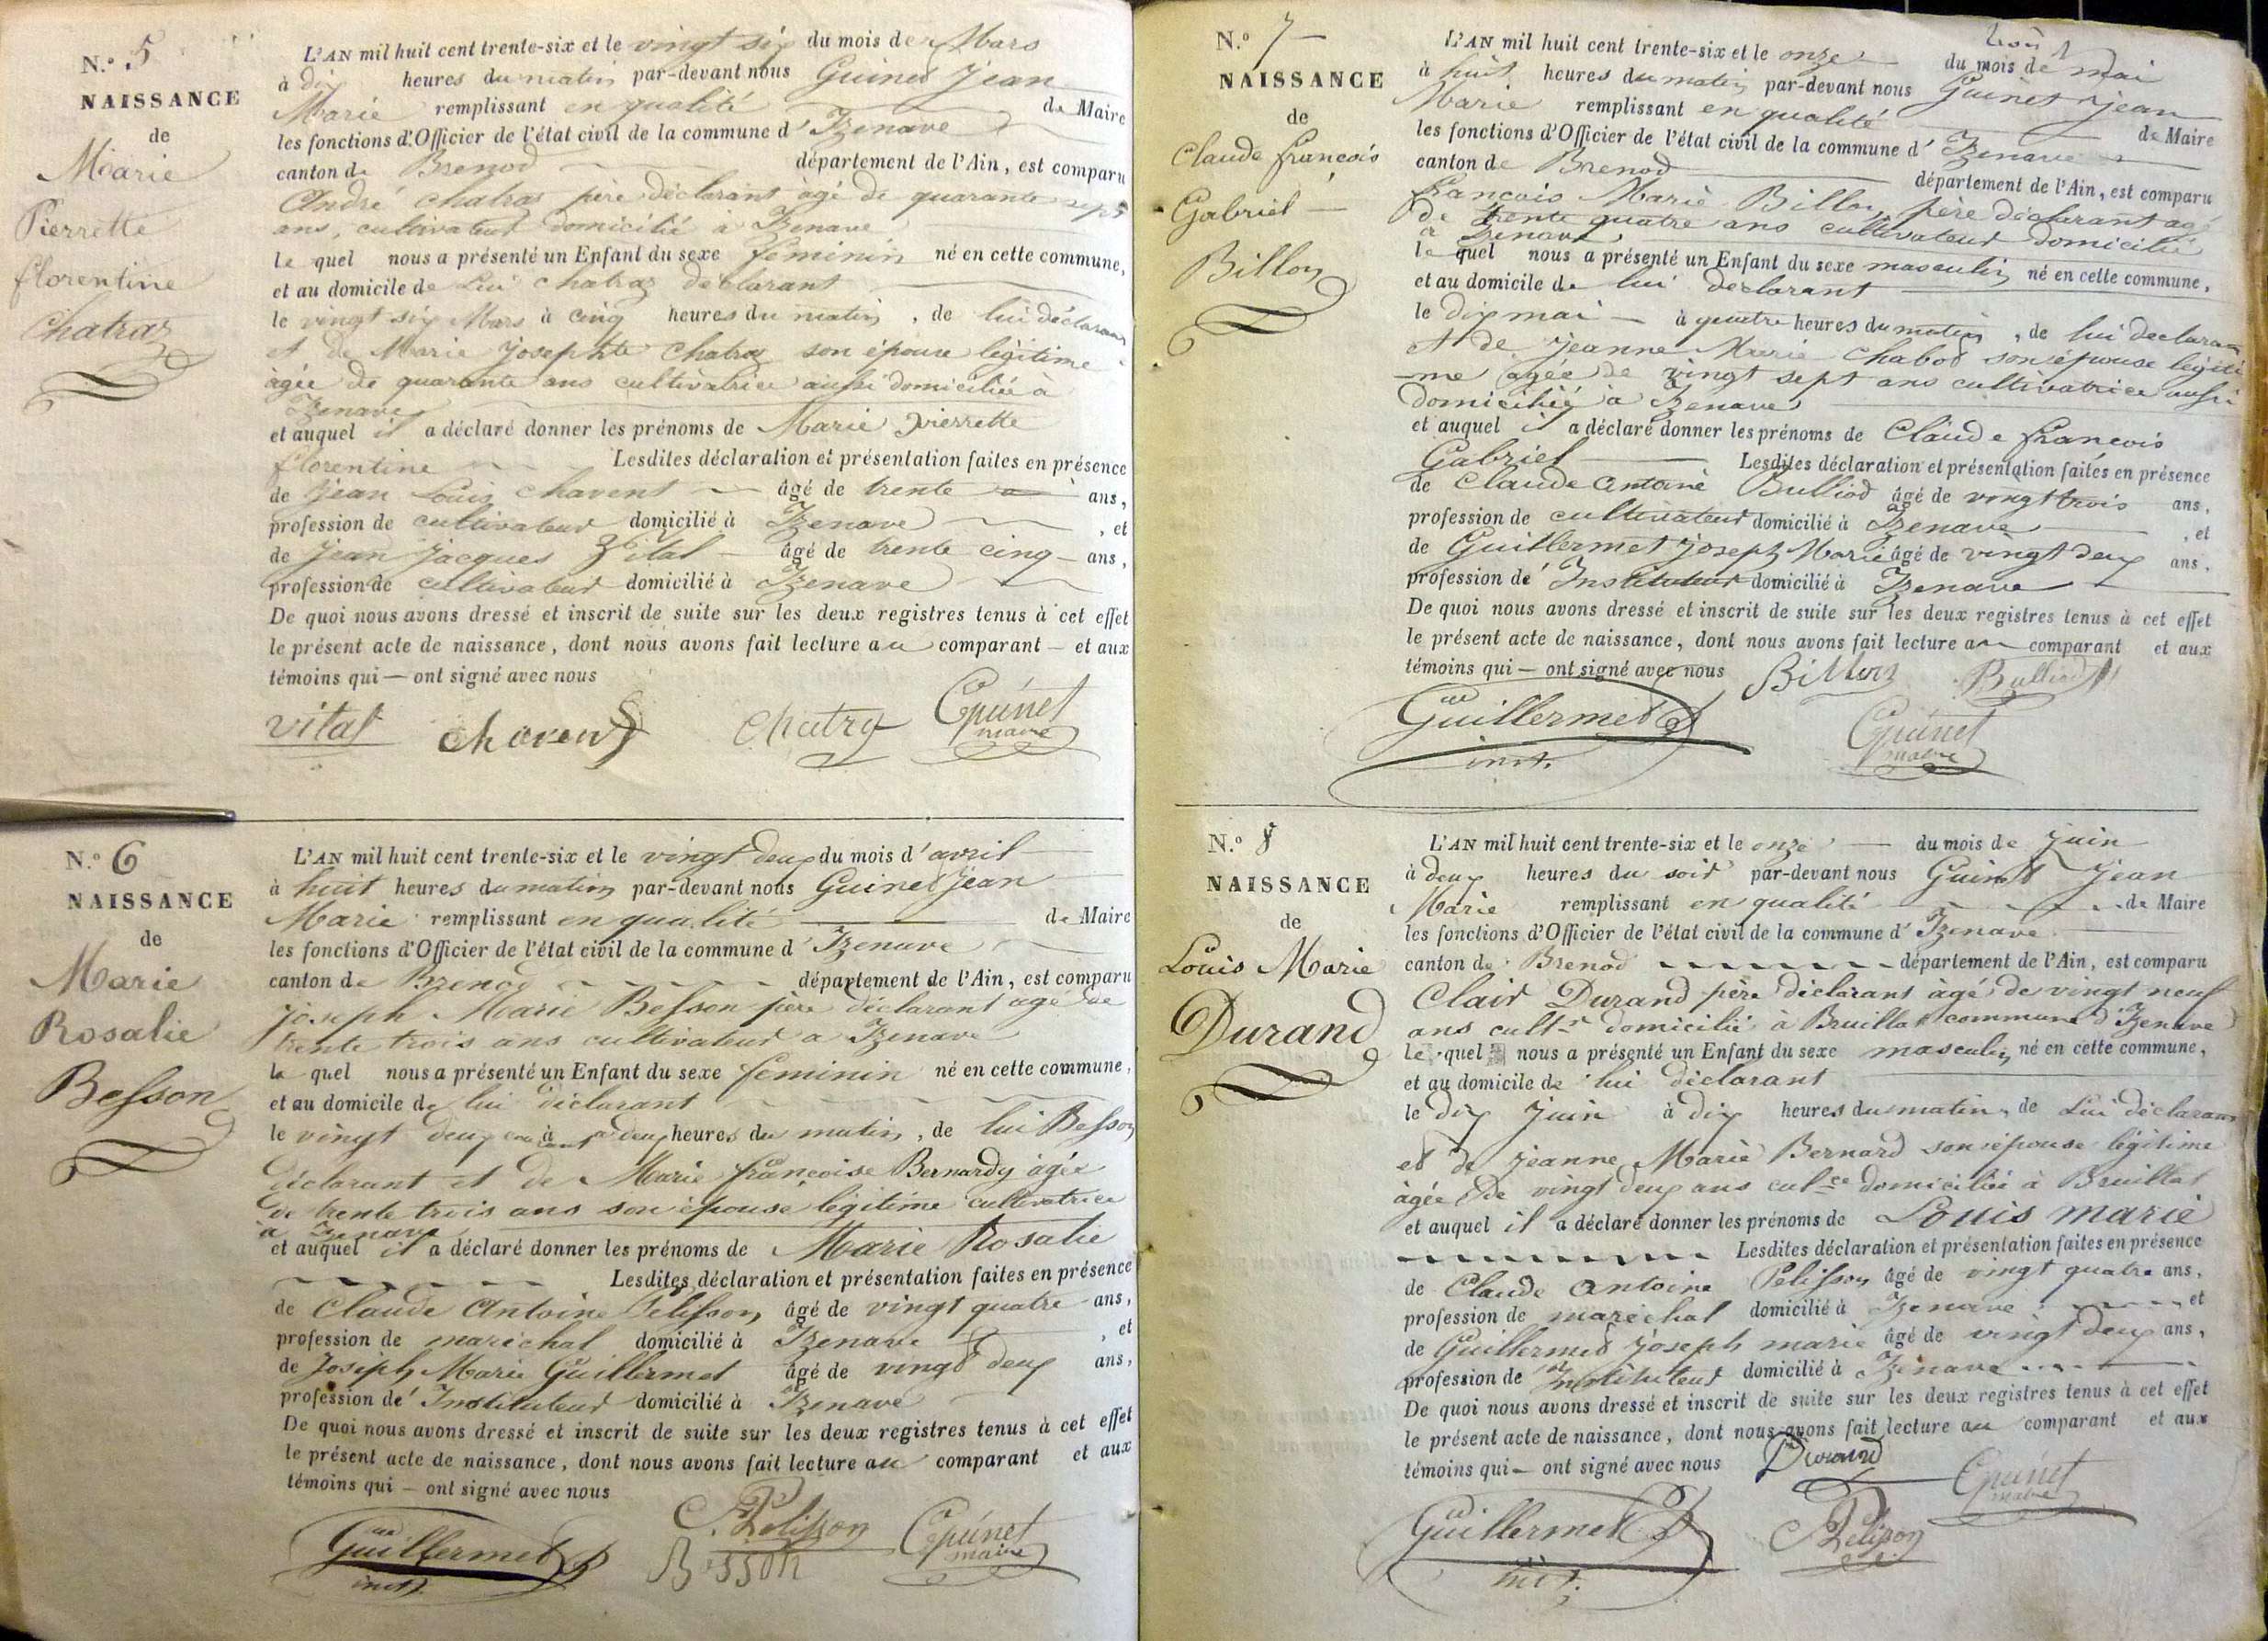 N.° 5
NAISSANCE
de
Marie
Pierrette
florentine
Chatraz
L'AN mil huit cent trente-six et le vingt six du mois de Mars
à dix heures du matin par-devant nous Guinet Jean
Marie remplissant en qualité de Maire
les fonctions d'Officier de l'état civil de la commune d' Izenave
canton de Brenod département de l'Ain, est comparu
André Chatraz père déclarant âgé de quarante sept
ans, cultivateur domicilié à Izenave
le quel nous a présenté un Enfant du sexe féminin né en cette commune,
et au domicile de Lui Chatraz déclarant
le vingt six Mars à cinq heures du matin, de lui déclarant
et de Marie Josephte Chatraz son épouse légitime
âgée de quarante ans cultivatrice aussi domiciliée à
Izenave
et auquel il a déclaré donner les prénoms de Marie Pierrette
florentine Lesdites déclaration et présentation faites en présence
de Jean Louis Chavent âgé de trente ans,
profession de cultivateur domicilié à Izenave, et
de Jean Jacques Vital âgé de trente cinq ans,
profession de cultivateur domicilié à Izenave
De quoi nous avons dressé et inscrit de suite sur les deux registres tenus à cet effet
le présent acte de naissance, dont nous avons fait lecture au comparant et aux
témoins qui ont signé avec nous
vital Chavent Chatraz Guinet
maire
N.° 6
NAISSANCE
de
Marie
Rosalie
Besson
L'AN mil huit cent trente-six et le vingt deux du mois d'avril
à huit heures du matin par-devant nous Guinet Jean
Marie remplissant en qualité de Maire
les fonctions d'Officier de l'état civil de la commune d' Izenave
canton de Brenod département de l'Ain, est comparu
Joseph Marie Besson père déclarant agé de
trente trois ans cultivateur a Izenave
le quel nous a présenté un Enfant du sexe féminin né en cette commune,
et au domicile de lui déclarant
le vingt deux courant à deux heures du matin, de lui Besson
déclarant et de Marie françoise Bernardy âgée
de trente trois ans son épouse légitime cultivatrice
a Izenave
et auquel il a déclaré donner les prénoms de Marie Rosalie
Lesdites déclaration et présentation faites en présence
de Claude Antoine Pelisson âgé de vingt quatre ans,
profession de maréchal domicilié à Izenave, et
de Joseph Marie Guillermet âgé de vingt deux ans,
profession d' Instituteur domicilié à Izenave
De quoi nous avons dressé et inscrit de suite sur les deux registres tenus à cet effet
le présent acte de naissance, dont nous avons fait lecture au comparant et aux
témoins qui ont signé avec nous
Guillermet C. Pelisson Guinet
inst. B sson maire
N.° 7
NAISSANCE
de
Claude françois
Gabriel
Billon
L'AN mil huit cent trente-six et le onze du mois de mai
à huit heures du matin par-devant nous Guinet Jean
Marie remplissant en qualité de Maire
les fonctions d'Officier de l'état civil de la commune d' Izenave
canton de Brenod département de l'Ain, est comparu
françois Marie Billon père déclarant agé
de trente quatre ans cultivateur domicilié
à Izenave
le quel nous a présenté un Enfant du sexe masculin né en cette commune,
et au domicile de lui déclarant
le dix mai à quatre heures du matin, de lui déclarant
et de Jeanne Marie Chabod son épouse légiti
-me âgée de vingt sept ans cultivatrice aussi
domiciliée à Izenave
et auquel il a déclaré donner les prénoms de Claude françois
Gabriel Lesdites déclaration et présentation faites en présence
de Claude Antoine Bulliod âgé de vingt trois ans,
profession de cultivateur domicilié à Izenave, et
de Guillermet Joseph Marie âgé de vingt deux ans,
profession d' Instituteur domicilié à Izenave
De quoi nous avons dressé et inscrit de suite sur les deux registres tenus à cet effet
le présent acte de naissance, dont nous avons fait lecture au comparant et aux
témoins qui ont signé avec nous Billon Bulliod
Guillermet Guinet
inst. maire
N.° 8
NAISSANCE
de
Louis Marie
Durand
L'AN mil huit cent trente-six et le onze du mois de juin
à deux heures du soir par-devant nous Guinet Jean
Marie remplissant en qualité de Maire
les fonctions d'Officier de l'état civil de la commune d' Izenave
canton de Brenod département de l'Ain, est comparu
Clair Durand père déclarant âgé de vingt neuf
ans cult.r domicilié à Bruillat commune d'Izenave
Le quel nous a présenté un Enfant du sexe masculin né en cette commune,
et au domicile de lui déclarant
le dix juin à dix heures du matin, de Lui déclarant
et de Jeanne Marie Bernard son épouse légitime
âgée de vingt deux ans cul.ce domiciliée à Bruillat
et auquel il a déclaré donner les prénoms de Louis marie
Lesdites déclaration et présentation faites en présence
de Claude Antoine Pelisson âgé de vingt quatre ans,
profession de maréchal domicilié à Izenave et
de Guillermet Joseph marie âgé de vingt deux ans,
profession de Instituteur domicilié à Izenave
De quoi nous avons dressé et inscrit de suite sur les deux registres tenus à cet effet
le présent acte de naissance, dont nous avons fait lecture au comparant et aux
témoins qui ont signé avec nous Durand
Guillermet Pelisson Guinet
inst. maire